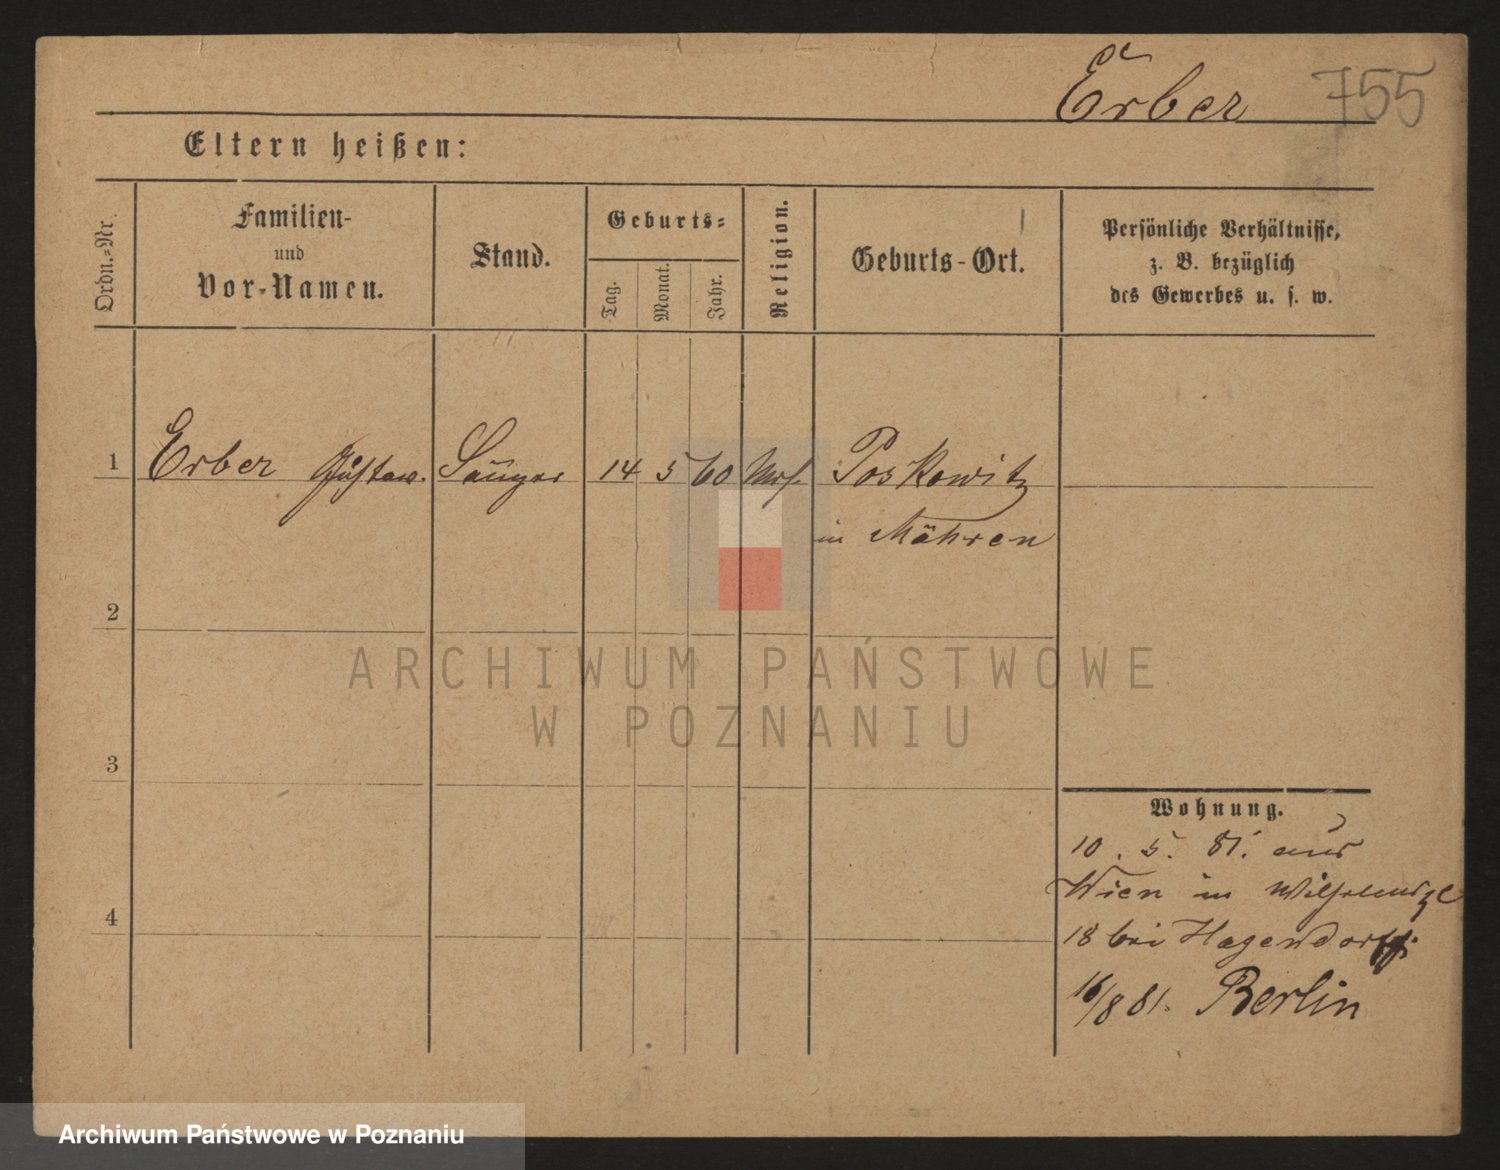 Erber 755
Eltern heißen:
Ordn.-Nr.
Familien-
und
Vor-Namen.
Stand.
Geburts-
Tag.
Monat.
Jahr.
Religion.
Geburts-Ort.
Persönliche Verhältnisse,
z. B. bezüglich
des Gewerbes u. s. w.
1 Erber Gustav. Sänger 14 5 60 Mos. Poskowitz
in Mähren
2
3
4
ARCHIWUM PAŃSTWOWE
W POZNANIU
Wohnung.
10. 5. 81. aus
Wien in Wilhelmspl
18 bei Hagendorff.
16/8 81. Berlin
Archiwum Państwowe w Poznaniu